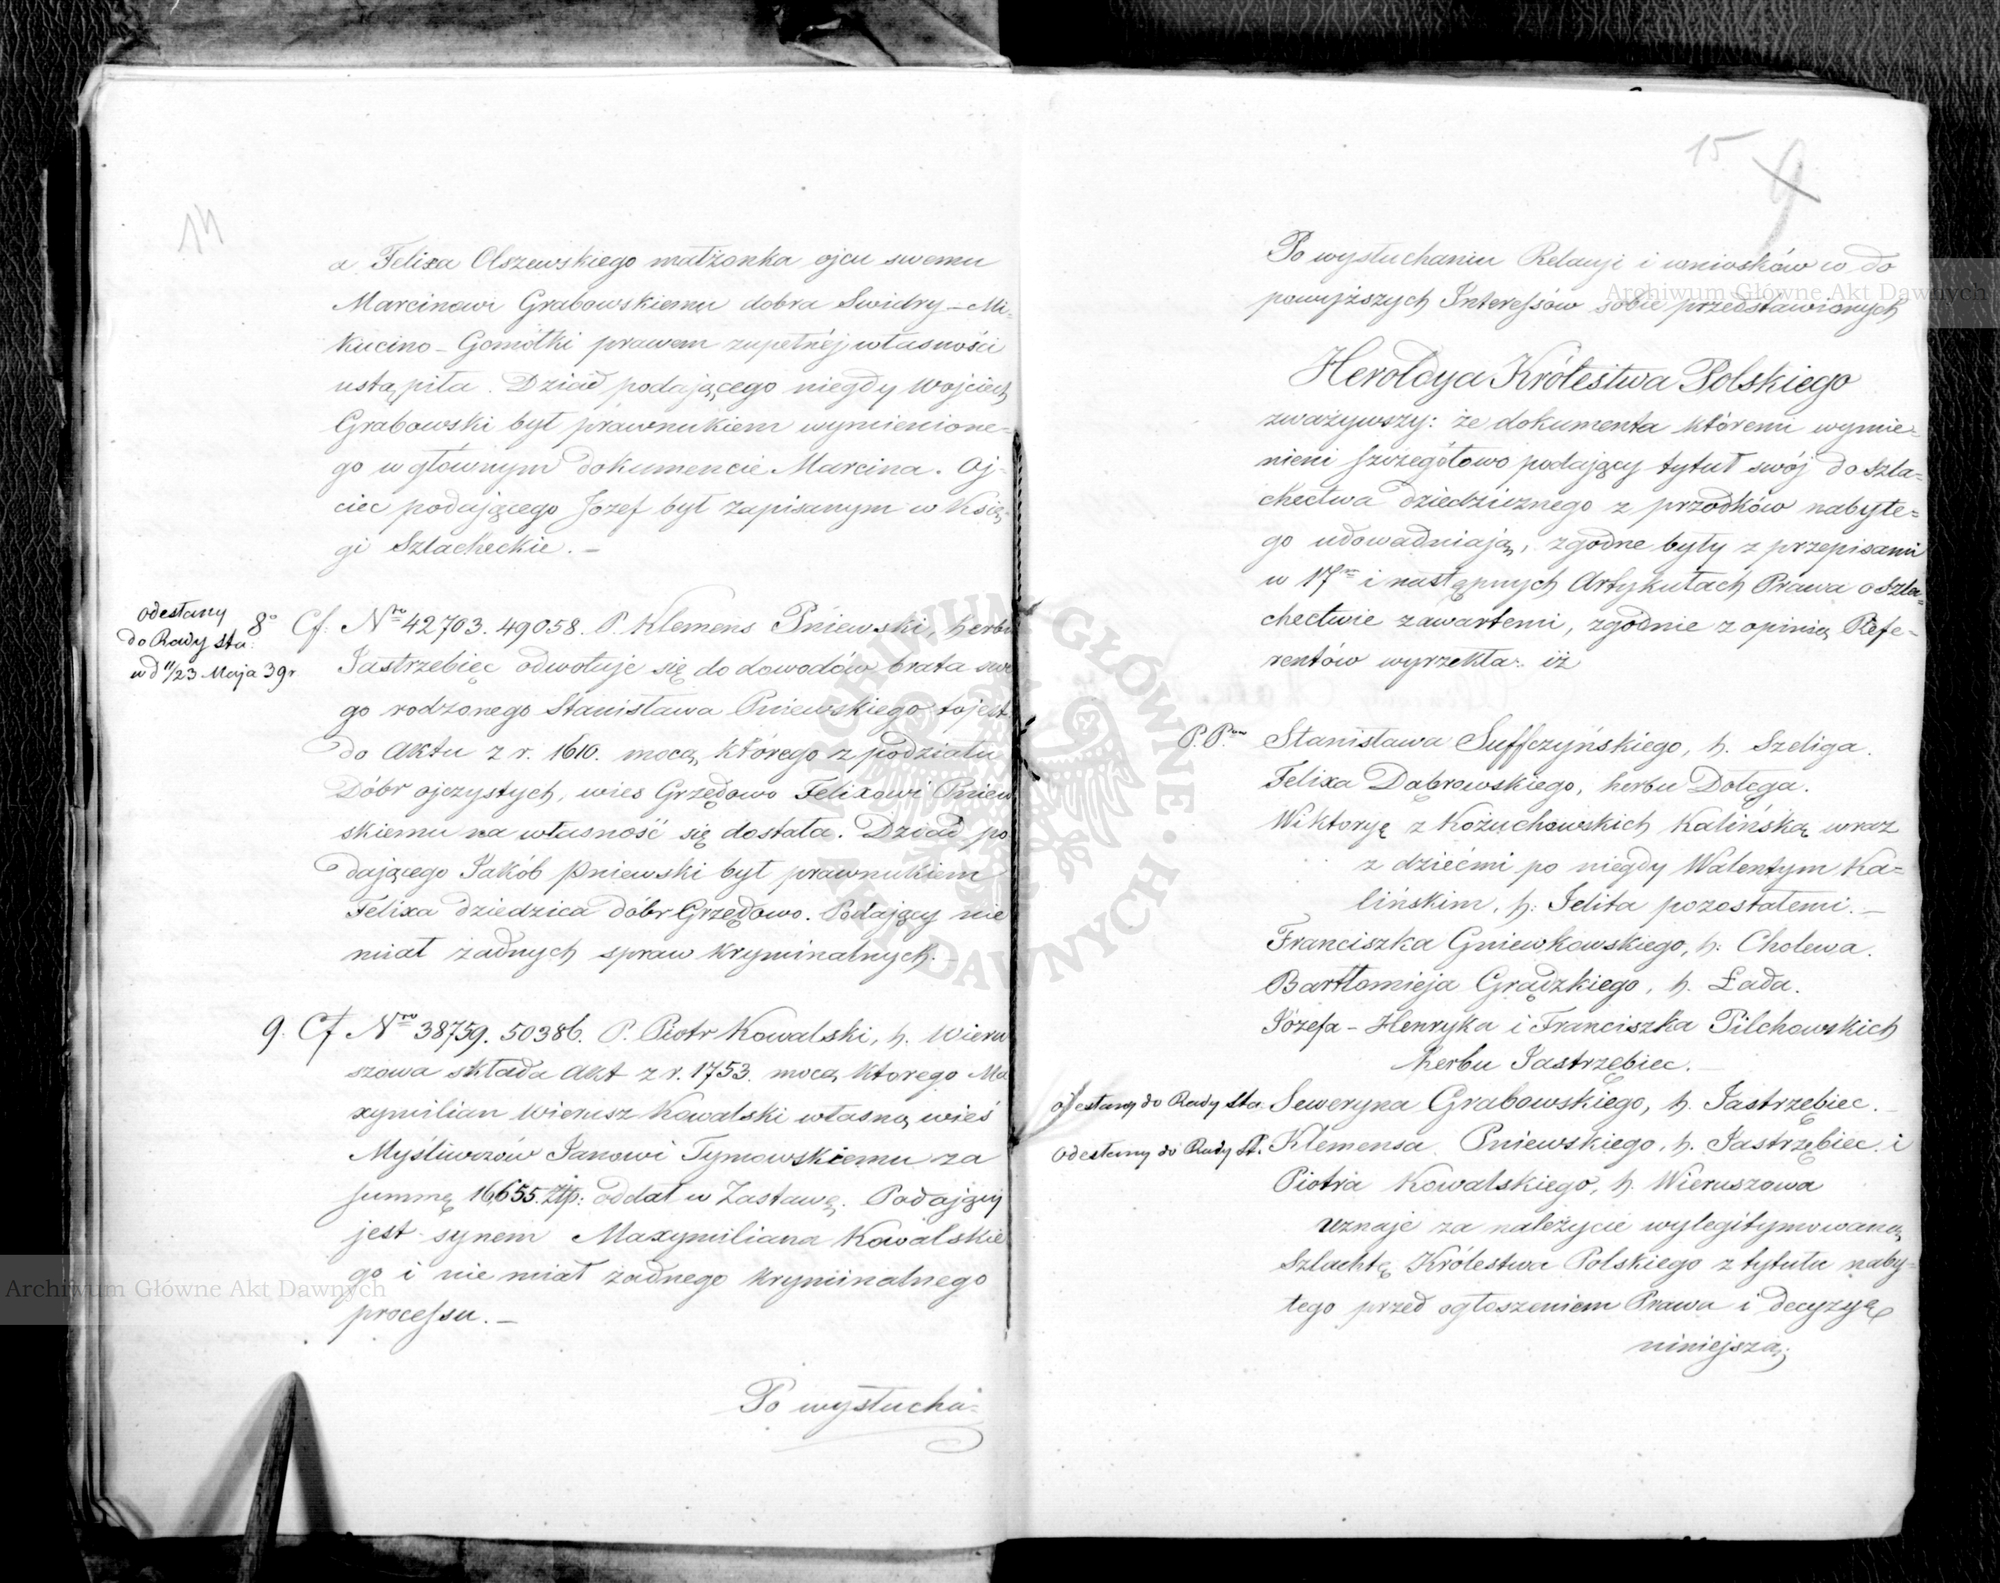 14
a Felixa Olszewskiego małżonka ojcu swemu
Marcinowi Grabowskiemu dobra Swidry – Mi-
kucino – Gomółki prawem zupełnéj własności
ustąpiła. Dziad podającego niegdy Wojciech
Grabowski był prawnukiem wymienione=
go w głównym dokumencie Marcina. Oj-
ciec podającego Jozef był zapisanym w Księ,
gi Szlacheckie. –
odesłany
do Rady Sta:
w d 11/23 Maja 39 r
8° Cf. Nro 42703. 49058. P. Klemens Pniewski, herbu
Jastrzebięc odwołuje się do dowodów brata swe
go rodzonego Stanisława Pniewskiego, to jest
do Aktu z r. 1610. mocą którego z podziału
Dóbr ojczystych, wies Grzędowo Felixowi Pniew
skiemu na własność się dostała. Dziad po
dającego Jakób Pniewski był prawnukiem
Felixa dziedzica dóbr Grzędowo. Podający nie
miał żadnych spraw kryminalnych. –
9. Cf Nro 38759. 50386. P. Piotr Kowalski, h. Wieru
szowa składa Akt z r. 1753. mocą ktorego Ma
xymilian Wierusz Kowalski własną wieś
Myśliwczów Janowi Tymowskiemu za
summę 16,655. Złp: oddał w Zastawę. Podający
jest synem Maxymiliana Kowalskie
go i nie miał żadnego kryminalnego
processu. –
Po wysłucha=
15 9
Po wysłuchaniu Relacyi i wniosków w do
powyższych Interessów sobie przedstawionych
Heroldya Królestwa Polskiego
zważywszy: że dokumenta któremi wymie=
nieni szczegółowo podający tytuł swój do Szla=
chectwa dziedzicznego z przodków nabyte=
go udowadniają, zgodne były z przepisami
w 17m i następnych Artykułach Prawa o Szla=
chectwie zawartemi, zgodnie z opinią Refe-
rentów wyrzekła: iż
P.P. Stanisława Suffczyńskiego, h. Szeliga.
Felixa Dąbrowskiego, herbu Dołęga.
Wiktoryę z Kożuchowskich Kalińską wraz
z dziećmi po niegdy Walentym Ka=
lińskim, h: Jelita pozostałemi. –
Franciszka Gniewkowskiego, h: Cholewa.
Bartłomieja Grądzkiego, h. Łada.
Józefa – Henryka i Franciszka Pilchowskich
herbu Jastrzębiec. –
odesłany do Rady Sta. Seweryna Grabowskiego, h. Jastrzębiec. –
odesłany do Rady St. Klemensa Pniewskiego, h. Jastrzębiec i
Piotra Kowalskiego, h. Wieruszowa
uznaje za należycie wylegitymowaną
Szlachtę Królestwa Polskiego z tytułu naby-
tego przed ogłoszeniem Prawa i decyzyę
niniejszą,
Archiwum Główne Akt Dawnych
Archiwum Główne Akt Dawnych
ARCHIWUM GŁÓWNE · AKT DAWNYCH ·